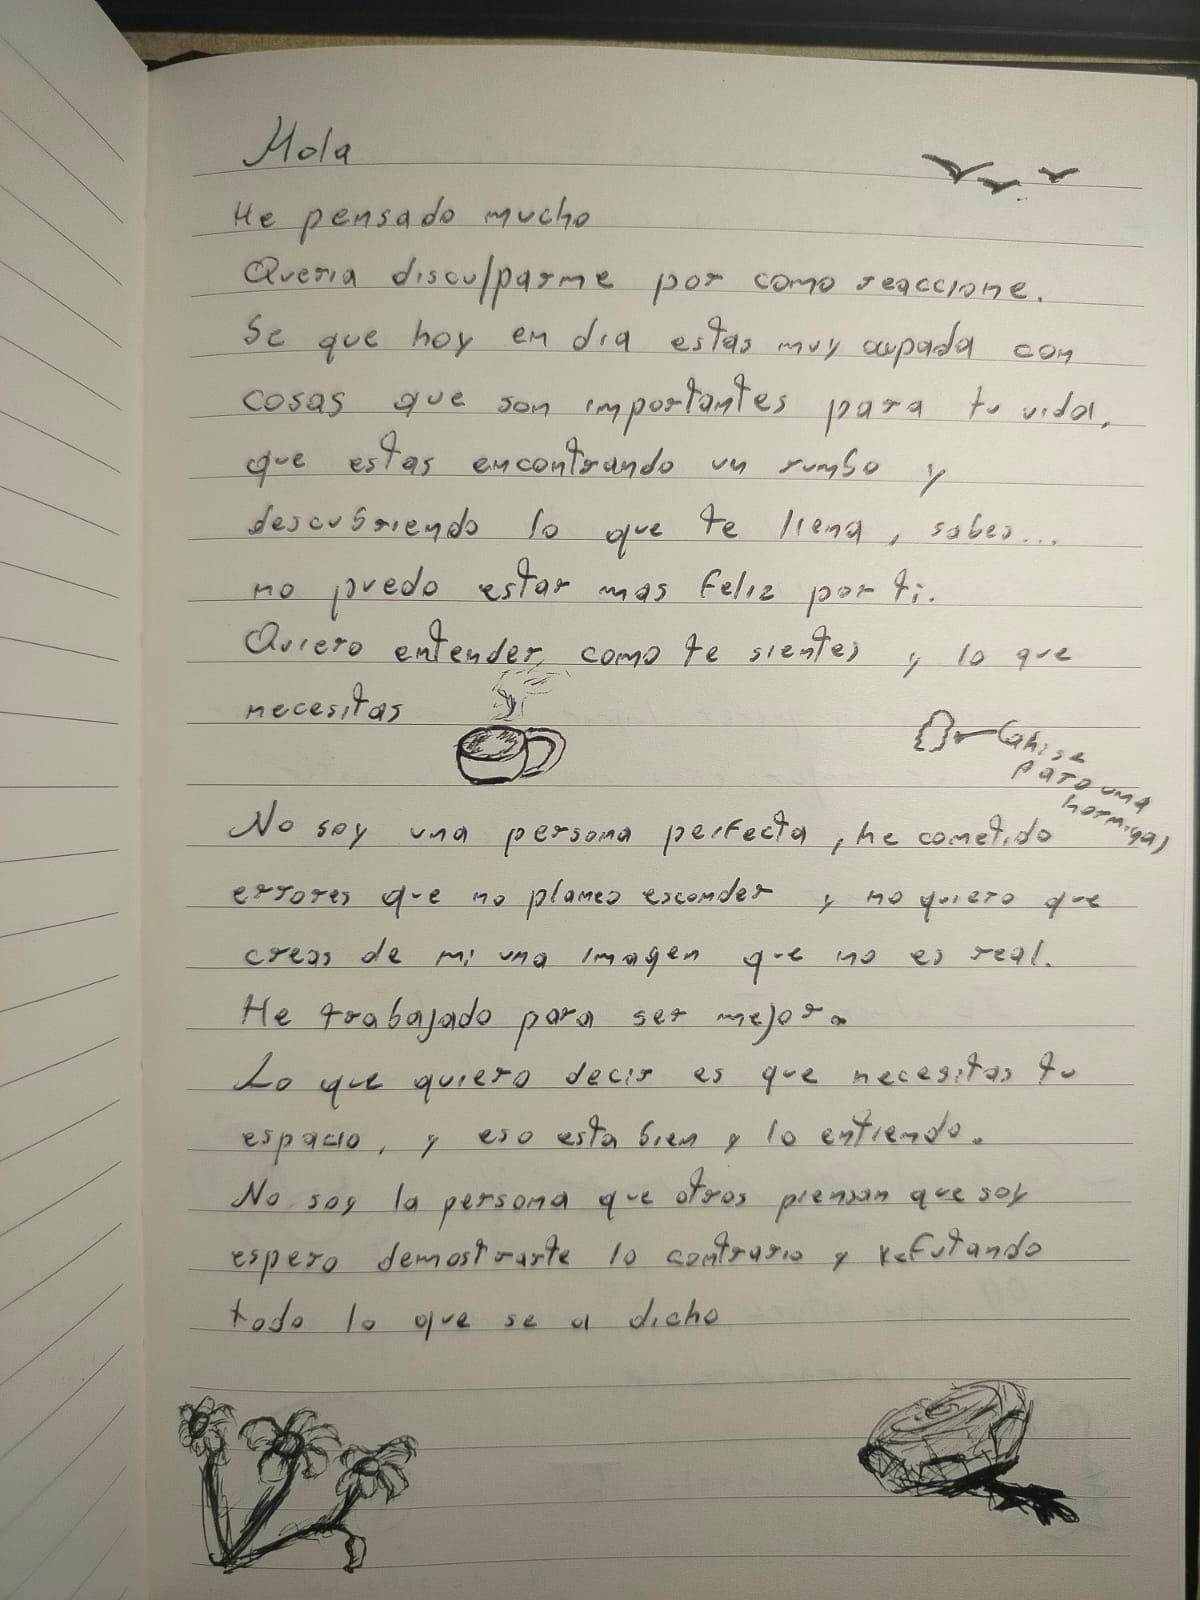 Hola
He pensado mucho
Queria disculparme por como reaccione.
Se que hoy en dia estas muy ocupada con
cosas que son importantes para tu vida,
que estas encontrando un rumbo y
descubriendo lo que te llena, sabes...
no puedo estar mas feliz por ti.
Quiero entender como te sientes y lo que
necesitas
paro una
hormiga,
No soy una persona perfecta, he cometido
errores que no planeo esconder y no quiero que
creas de mi una imagen que no es real.
He trabajado para ser mejor.
Lo que quiero decir es que necesitas tu
espacio, y eso esta bien y lo entiendo.
No soy la persona que otros piensan que soy
espero demostrarte lo contrario y refutando
todo lo que se a dicho